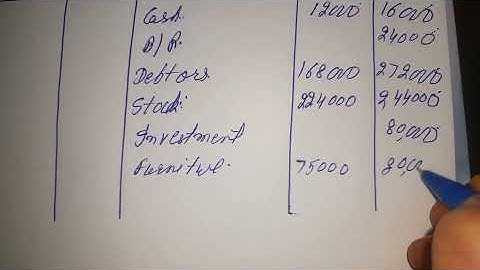 Cash. 12000 16000
B/R. 24000
Debtors 168000 272000
Stock 224000 244000
Investment 80,000
Furniture. 75000 80,00